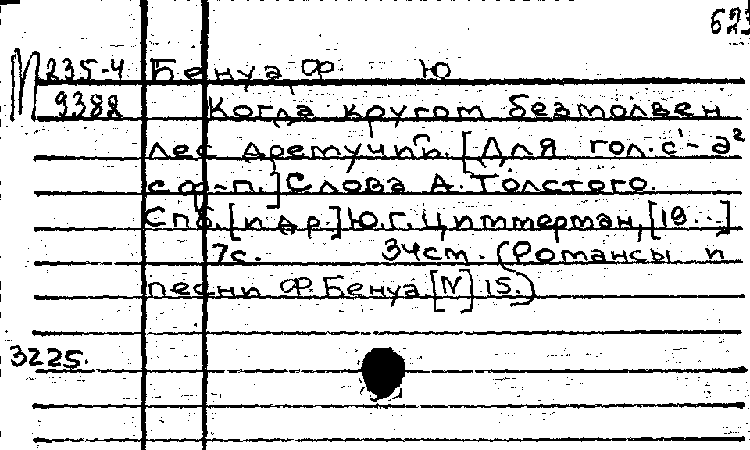 623
М 235-4 Бенуа, Ф. Ю
9388 Когда кругом безмолвен
лес дремучий. [Для гол. c¹-a²
с ф-п.] Слова А. Толстого.
Спб. [и др.] Ю.Г. Циммерман, [18...]
7с. 34см. (Романсы и
песни Ф. Бенуа. [N] 15.)
3225.